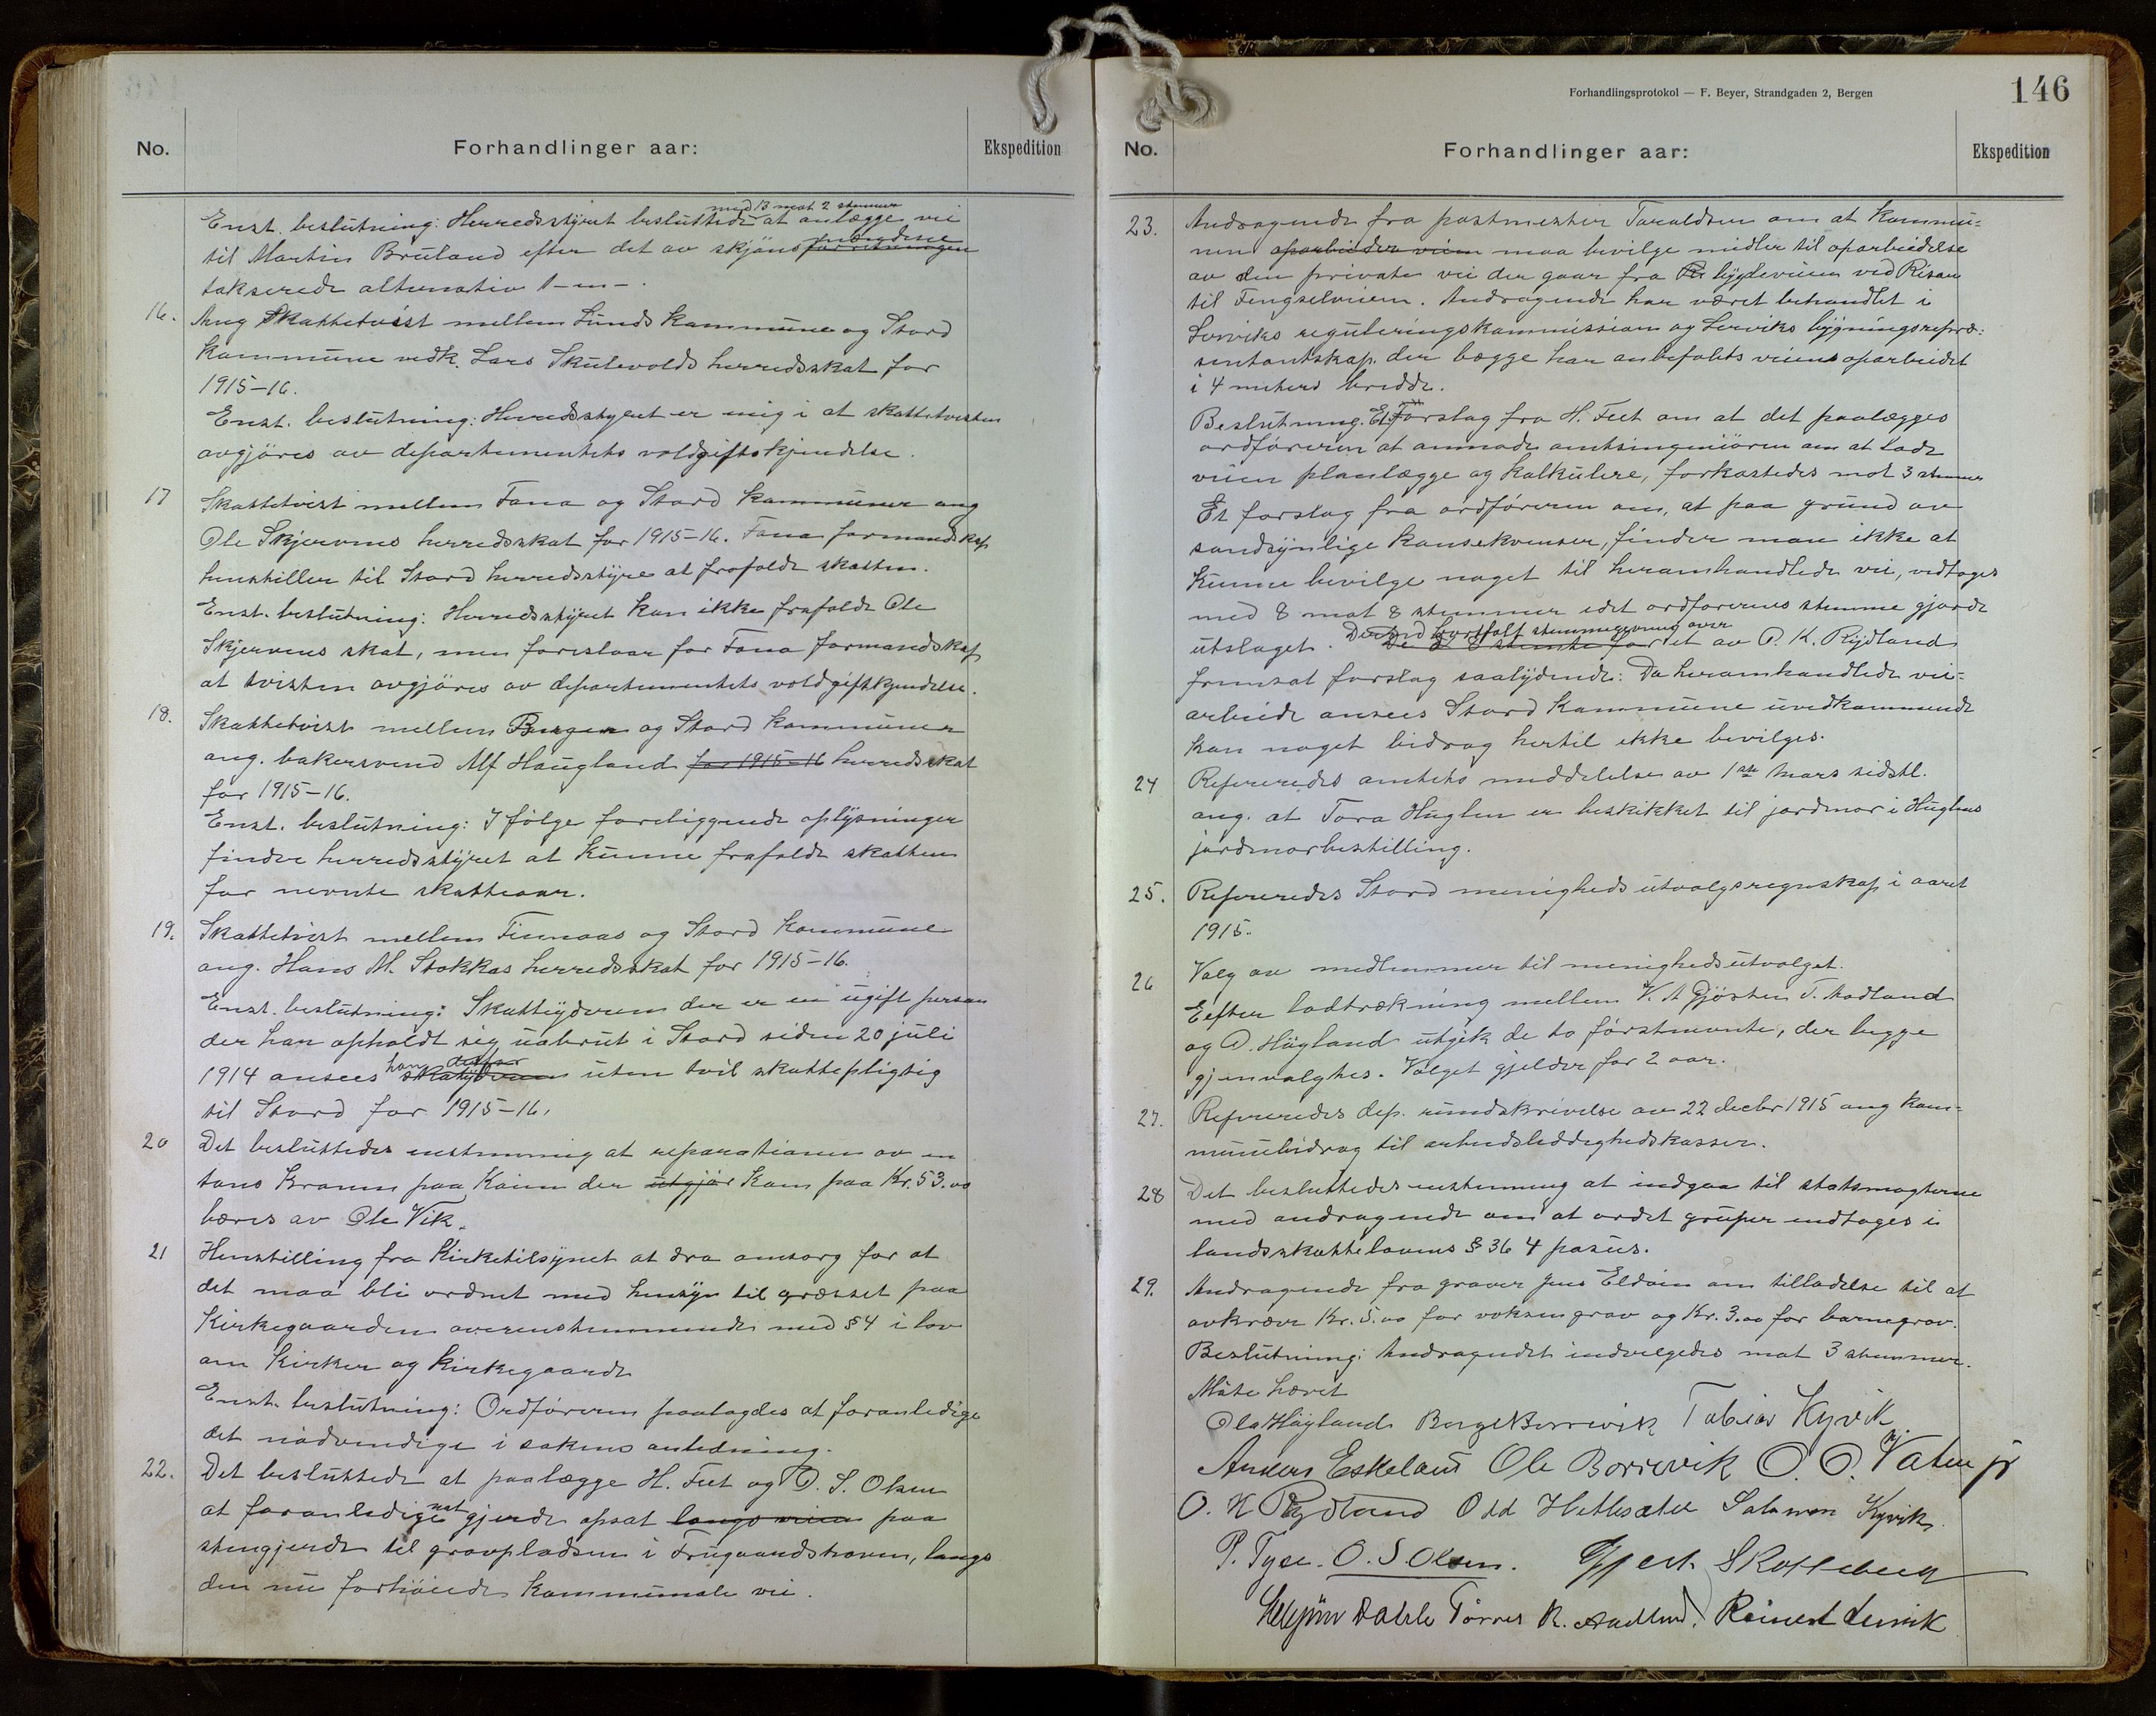 No.
Forhandlinger aar:
Ekspedition
med 13 mot 2 stemmer
Enst. beslutning: Herredsstyret besluttede at anlægge vei
til Martin Bruland efter det av skjöns forretningen
takserede alternativ 1-m-.
16. Ang Skattetvist mellem Lunds kommune og Stord
kommune vedk. Lars Skulevolds herredsskat for
1915-16.
Enst. beslutning: Herredsstyret er enig i at skattetvisten
avgjöres av departementets voldgiftskjendelse.
17 Skattetvist mellem Fana og Stord kommuner ang
Ole Skjervens herredsskat for 1915-16. Fana formandskap
henstiller til Stord herredsstyre at frafalde skatten.
Enst. beslutning: Herredsstyret kan ikke frafalde Ole
Skjervens skat, men foreslaar for Fana formandskap
at tvisten avgjöres av departementets voldgiftkjendelse.
18. Skattetvist mellem Bergen og Stord kommuner
ang. bakersvend Alf Haugland for 1915-16 herredsskat
for 1915-16.
Enst. beslutning: I fölge foreliggende oplysninger
finder herredsstyret at kunne frafalde skatten
for nevnte skatteaar.
19. Skattetvist mellem Finnaas og Stord kommune
ang. Hans M. Stokkas herredsskat for 1915-16.
Enst. beslutning: Skatteyderen der er en ugift person
der har opholdt sig uabrut i Stord siden 20 juli
han derfor
1914 ansees skatyderen uten tvil skattepligtig
til Stord for 1915-16.
20 Det besluttedes enstemmig at reparationen av en
tons kranen paa Kaien der utgjör kom paa Kr. 53.00
bæres av Ole Vik.
21 Henstilling fra Kirketilsynet at dra omsorg for at
det maa bli ordnet med hensyn til græsset paa
Kirkegaarden overenstemmende med § 4 i lov
om Kirker og kirkegaarde
Enst. beslutning: Ordföreren paalagdes at foranledige
det nödvendige i sakens anledning.
22. Det besluttede at paalægge H. Feet og O. S. Olsen
at foranledige nat gjerde opsat langs veien paa
stengjerde til gravpladsen i Frugaardshaven, langs
den nu forhöiede kommunale vei.
Forhandlingsprotokol — F. Beyer, Strandgaden 2, Bergen
146
No.
Forhandlinger aar:
Ekspedition
23. Andragende fra postmester Taraldsen om at kommu-
nen oparbeider veien maa bevilge midler til oparbeidelse
av den private vei der gaar fra bygdeveien ved Risan
til Fengselveien. Andragende har været behandlet i
Lerviks reguleringskommission og Lerviks bygningsrepræ-
sentantskap. der begge har anbefalets veiens oparbeidet
i 4 meters bredde.
Beslutning. Et Forslag fra H. Feet om at det paalægges
ordföreren at anmode amtsingeniören om at lade
veien planlægge og kalkulere, forkastedes mot 3 stemmer
Et forslag fra ordföreren om, at paa grund av
sandsynlige konsekvenser, finder man ikke at
kunne bevilge noget til heromhandlede vei, vedtoges
med 8 mot 8 stemmer idet ordförerens stemme gjorde
Derved bortfalt stemmegivning over
utslaget. De 8 stemte for et av O. K. Rydland
fremsat forslag saalydende: Da heromhandlede vei-
arbeide ansees Stord kommune uvedkommende
kan noget bidrag hertil ikke bevilges.
24 Refereredes amtets meddelelse av 1ste Mars sidstl.
ang. at Tora Huglen er beskikket til jordmor i Huglens
jordmorbestilling.
25. Refereredes Stord menigheds utvalgsregnskap i aaret
1915.
26 Valg av medlemmer til menighedsutvalget.
Eefter lodtrækning mellem V. A Gjösten T. Aadland
og O. Höyland utgik de to förstnevnte, der begge
gjenvalgtes. Valget gjelder for 2 aar.
27. Refereredes dep. rundskrivelse av 22 decbr 1915 ang kom-
munebidrag til arbeidsleddighedskasser.
28 Det besluttedes enstemmig at indgaa til statsmagterne
med andragende om at ordet gruper indtages i
landsskattelovens § 36 4 pasus.
29. Andragende fra graver Jens Eldöen om tilladelse til at
avkræve Kr. 5.00 for voksengrav og Kr. 3.00 for barnegrav.
Beslutning: Andragendet indvilgedes mot 3 stemmer.
Möte hævet
Ola Höyland Berge Borrevik Tobias Kyvik
Anders Eskeland Ole Borrevik O. O. Vatna jr
O. K Rydland Odd Hetlesæter Salomon Kyvik
P. Tyse. O. S Olsen. Gjert Skotteberg
Dahle Törres R. Aadland. Reinert Lervik